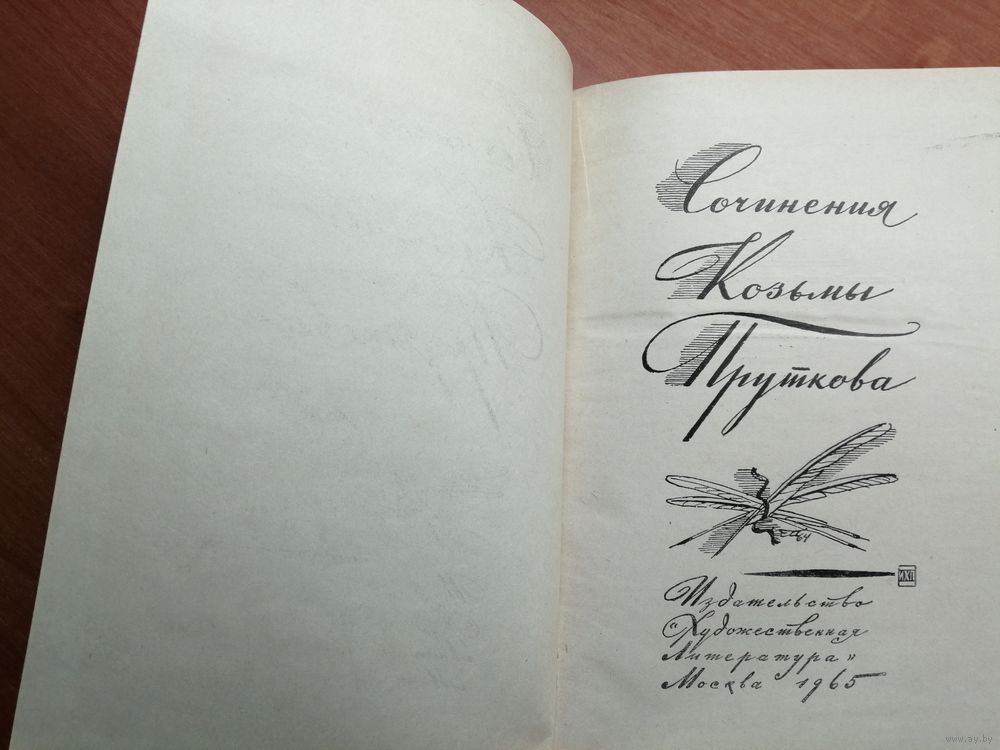 Сочинения
Козьмы
Пруткова
Издательство
"Художественная
Литература"
Москва 1965
www.ay.by